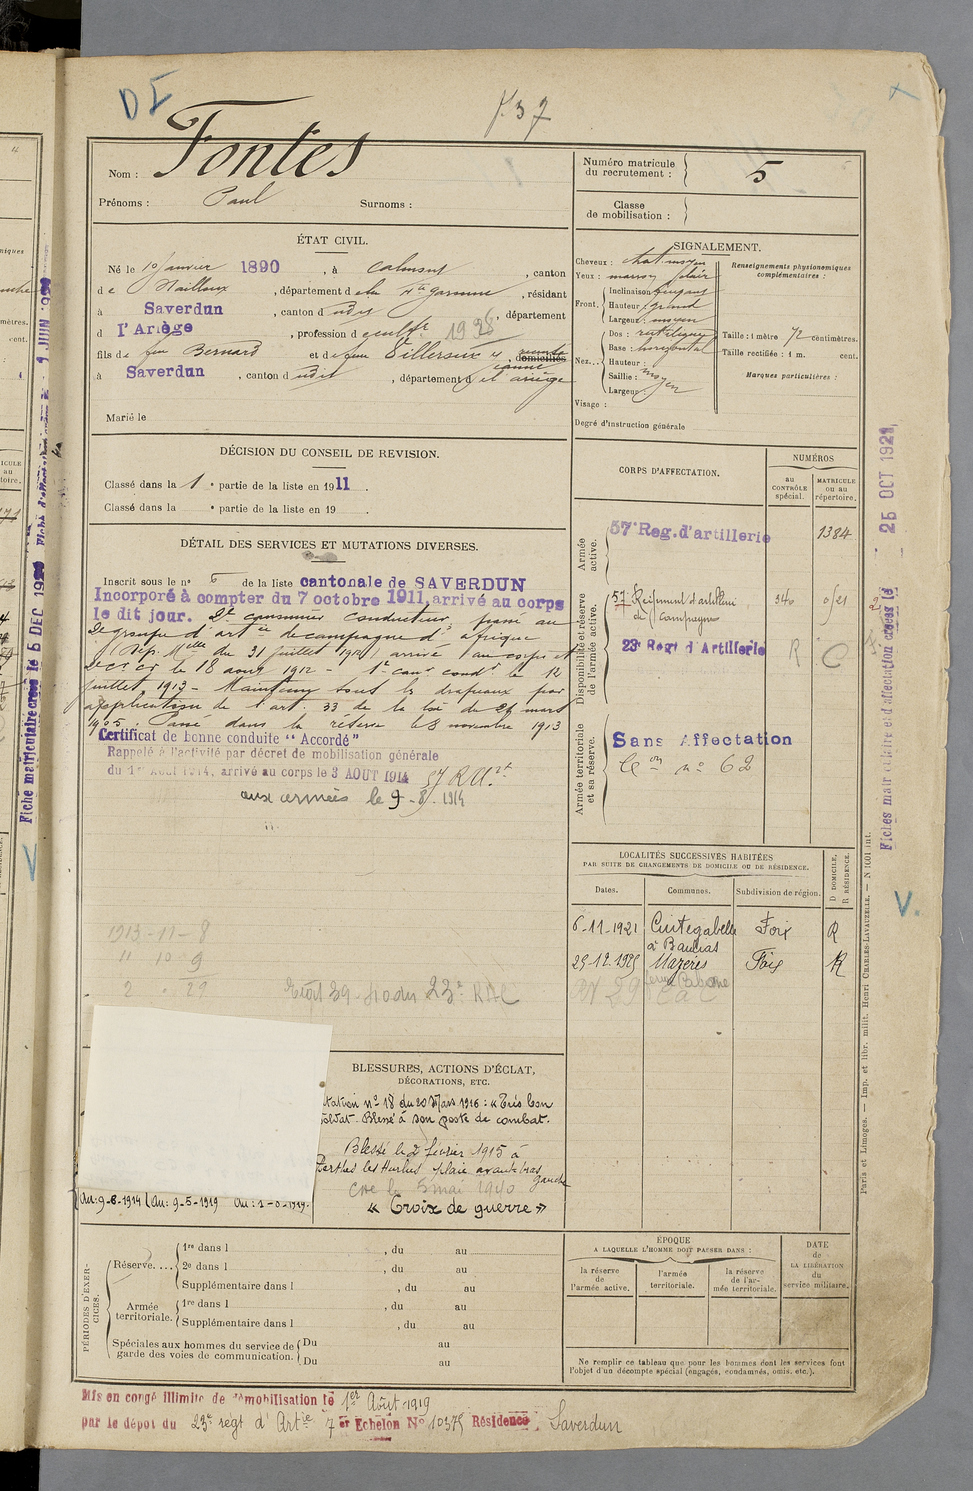 DE
Nom : Fontes
Prénoms : Paul Surnoms :
Numéro matricule du recrutement : 5
Classe de mobilisation :
ÉTAT CIVIL.
Né le 10 janvier 1890, à Calmont, canton
de Nailloux, département de la Hte Garonne, résidant
à Saverdun, canton dudit, département
d l'Ariège, profession d cultr 1928
fils de feu Bernard et de feue Villeroux
à Saverdun, canton dudit, département d et ariège
domiciliés
Marié le
SIGNALEMENT.
Cheveux : chat. moyen
Yeux : marron clair
Front. Inclinaison fuyant
Hauteur grand
Largeur moyen
Nez... Dos : rectiligne
Base : horizontal
Hauteur :
Saillie : moyen
Largeur
Visage :
Degré d'instruction générale
Renseignements physionomiques complémentaires :
Taille : 1 mètre 72 centimètres.
Taille rectifiée : 1 m. cent.
Marques particulières :
DÉCISION DU CONSEIL DE REVISION.
Classé dans la 1e partie de la liste en 1911.
Classé dans la e partie de la liste en 19 .
DÉTAIL DES SERVICES ET MUTATIONS DIVERSES.
Inscrit sous le n° 6 de la liste cantonale de SAVERDUN
Incorporé à compter du 7 octobre 1911, arrivé au corps
le dit jour. 2e canonnier conducteur, passé au
2e groupe d'artie de campagne d'afrique
(Dép. Mlle du 31 juillet 1912) arrivé au corps et
2e cr cr le 18 aout 1912 1r canr condr le 12
juillet 1913 - Maintenu sous les drapeaux par
application de l'art. 33 de la loi du 21 mars
1905. Passé dans la réserve le 8 novembre 1913
Certificat de bonne conduite "Accordé"
Rappelé à l'activité par décret de mobilisation générale
du 1er Août 1914, arrivé au corps le 3 AOUT 1914 57 R Art
aux armées le 9-8-1914
1913-11-8
11 10 9
2 . 29
23e RAC
CORPS D'AFFECTATION.
NUMÉROS
au CONTRÔLE spécial.
MATRICULE ou au répertoire.
Armée active.
57e Reg. d'artillerie 1384
Disponibilité et réserve de l'armée active.
57 Régiment d'artillerie de Campagne 340 0/21
23e Regt d'Artillerie R C
Armée territoriale et sa réserve.
Sans Affectation
n° 62
LOCALITÉS SUCCESSIVES HABITÉES
PAR SUITE DE CHANGEMENTS DE DOMICILE OU DE RÉSIDENCE.
Dates. Communes. Subdivision de région. D DOMICILE. R RÉSIDENCE.
6-11-1921 Cintegabelle Foix R
à Baccras
29-12-1925 Mazères Foix R
BLESSURES, ACTIONS D'ÉCLAT,
DÉCORATIONS, ETC.
tation n° 18 du 20 Mars 1916 : « Très bon
soldat. Blessé à son poste de combat.
Blessé le 2 février 1915 à
Perthes les Hurlus plaie avant bras
gauche
5 mai 1940
« Croix de guerre »
Au : 9-8-1914 (au : 9-5-1919
PÉRIODES D'EXERCICES.
Réserve.... 1re dans l , du au
2e dans l , du au
Supplémentaire dans l , du au
Armée territoriale. 1re dans l , du au
Supplémentaire dans l , du au
Spéciales aux hommes du service de garde des voies de communication. Du au
Du au
ÉPOQUE
A LAQUELLE L'HOMME DOIT PASSER DANS :
la réserve de l'armée active.
l'armée territoriale.
la réserve de l'armée territoriale.
DATE de LA LIBÉRATION du service militaire.
Ne remplir ce tableau que pour les hommes dont les services font
l'objet d'un décompte spécial (engagés, condamnés, omis, etc.).
Mis en congé illimité de démobilisation le 1er Août 1919
par le dépot du 23e régt d'Artie 7er Echelon N° 10375 Résidence Saverdun
Paris et Limoges. — Imp. et libr. milit. Henri CHARLES-LAVAUZELLE. — N 1001 int.
Fiches matriculaire et d'affectation créées le 25 OCT 1921
V.
Fiche matriculaire créée le 5 DEC 1920
V